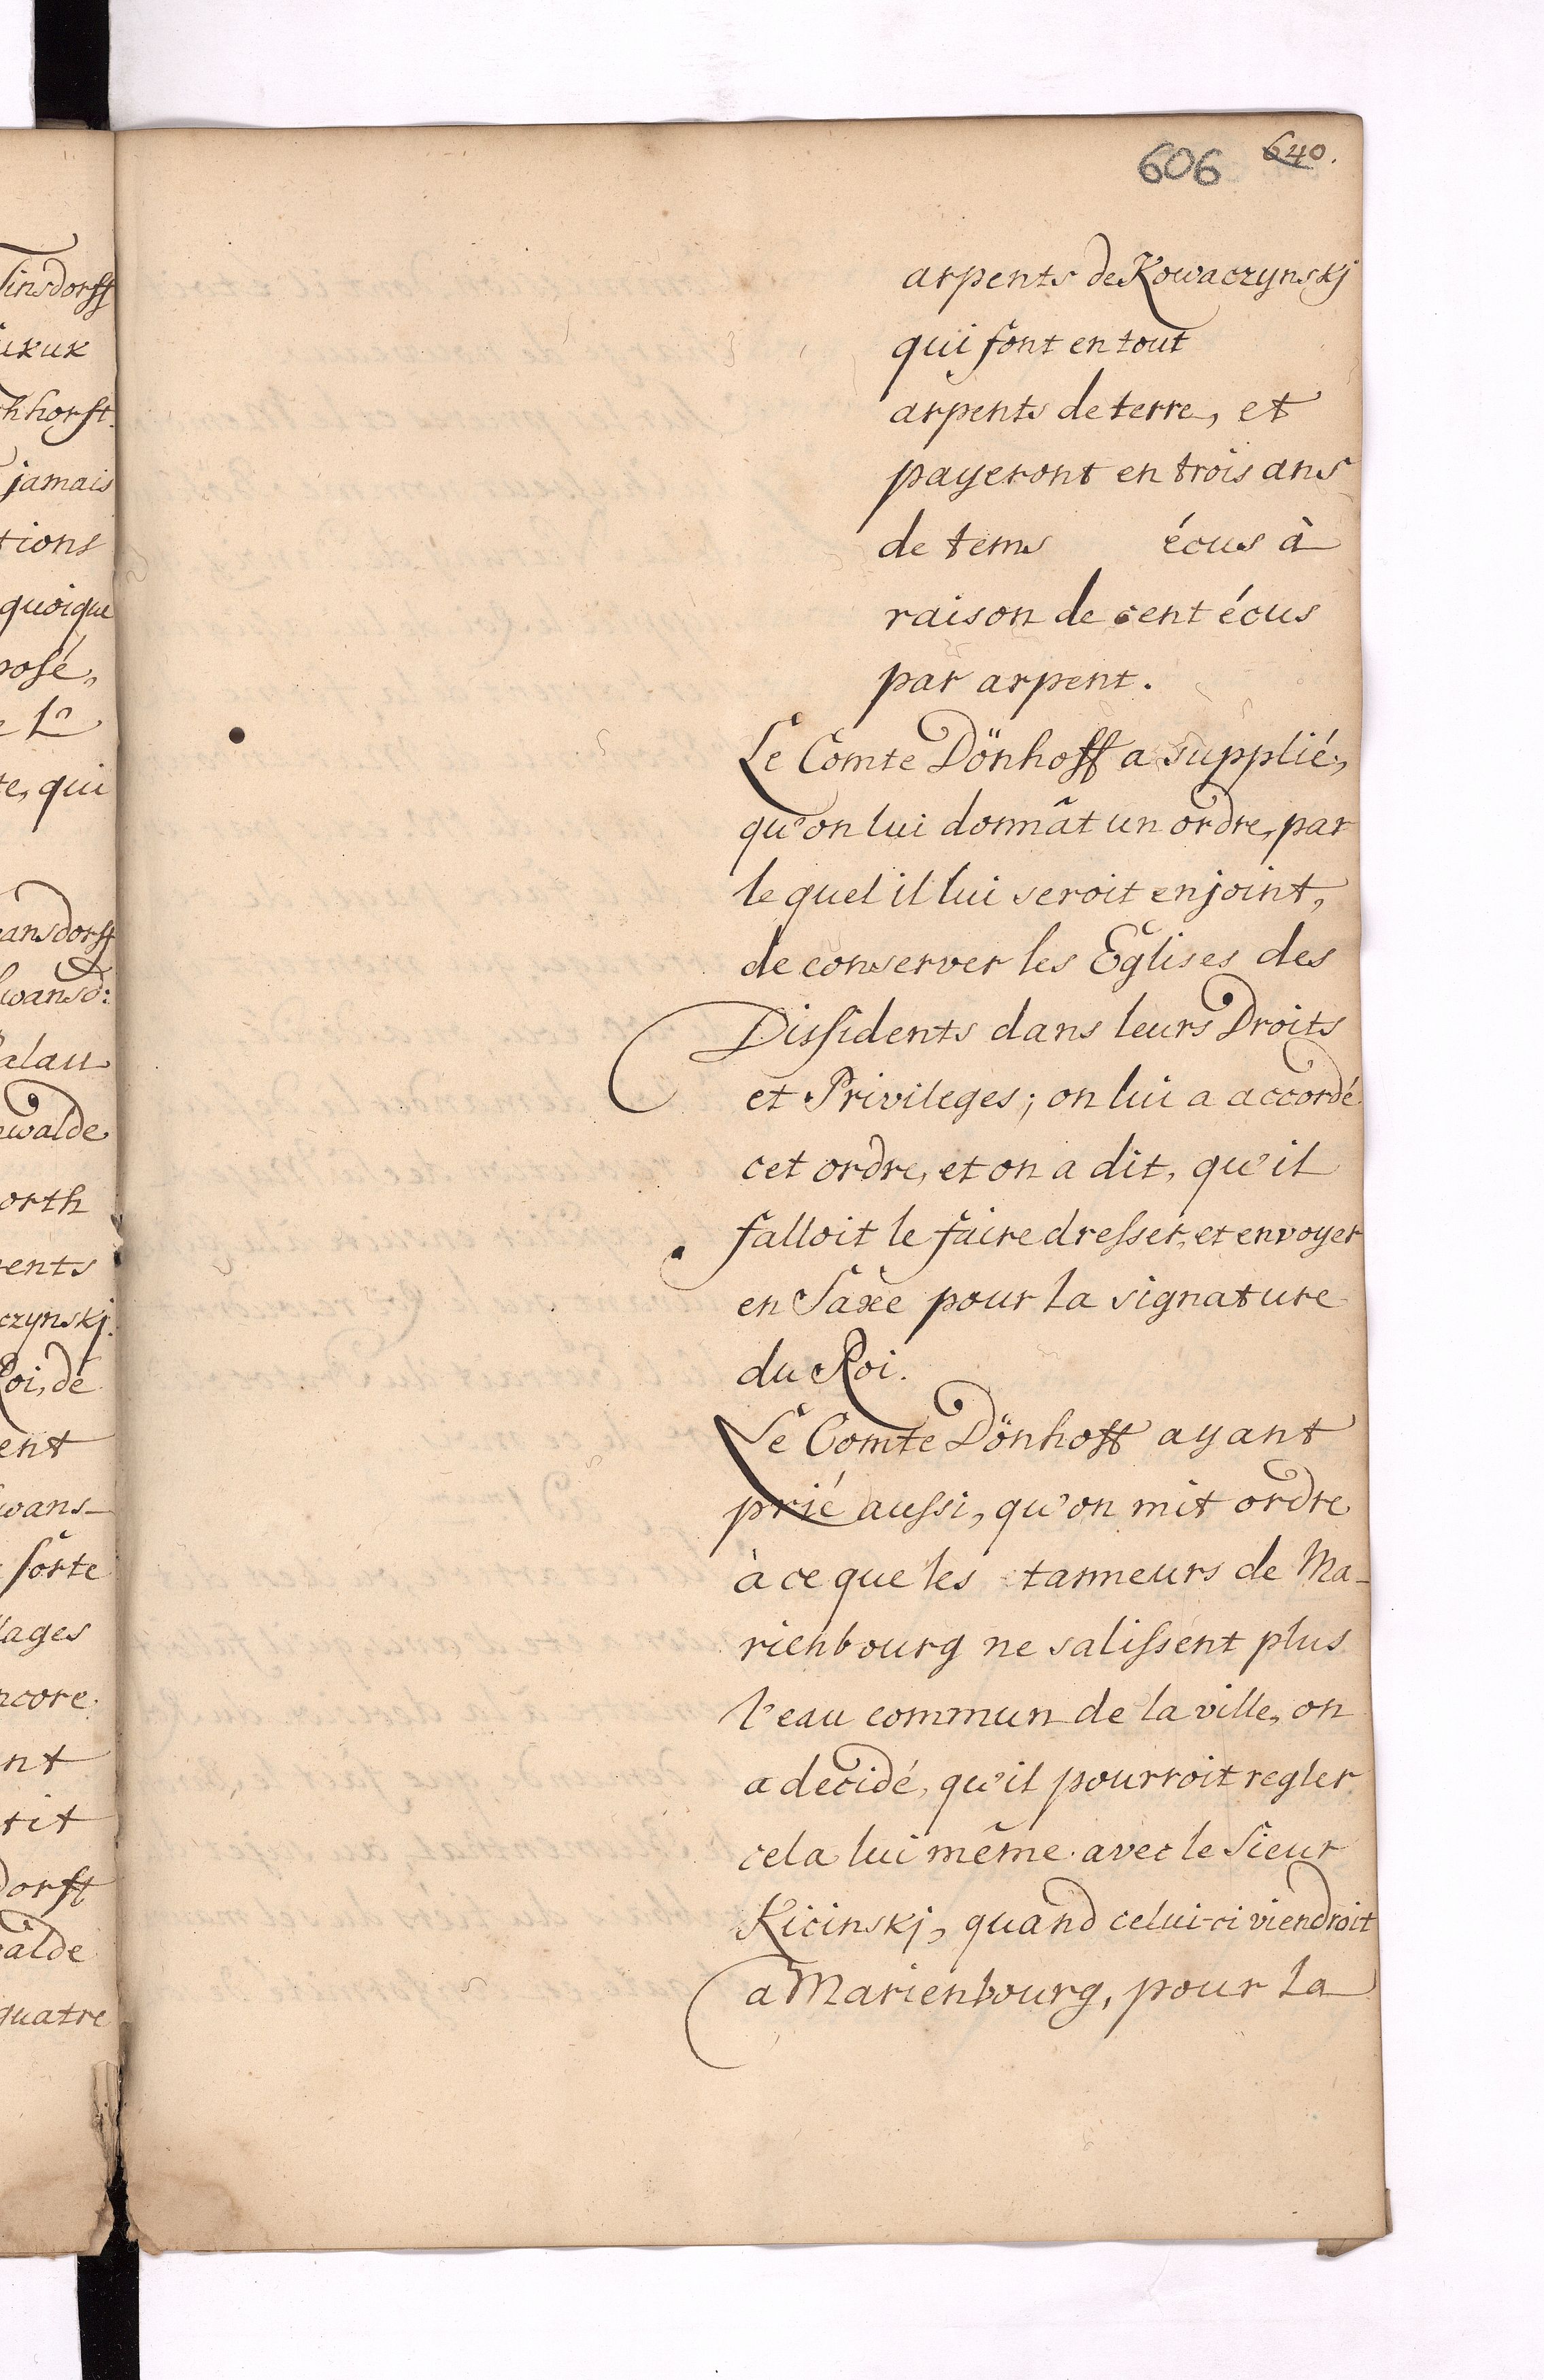 606 640.
arpents de Kowaczynskj
qui font en tout
arpents de terre, et
payeront en trois ans
de tems écus à
raison de cent écus
par arpent.
Le Comte Dönhoff a supplié,
qu'on lui donnât un ordre, par
le quel il lui seroit enjoint,
de conserver les Eglises des
Dissidents dans leurs Droits
et Privileges; on lui a accordé
cet ordre, et on a dit, qu'il
falloit le faire dresser, et envoyer
en Saxe pour la signature
du Roi.
Le Comte Dönhoff ayant
prié aussi, qu'on mit ordre
à ce que les tanneurs de Ma-
rienbourg ne salissent plus
l'eau commun de la ville, on
a decidé, qu'il pourroit regler
cela lui même avec le Sieur
Kicinskj, quand celui-ci viendroit
a Marienbourg, pour la
insdorff
ukuk
hhorst.
jamais
tions
quoique
posé,
te, qui
ansdorff
wansd:
alau
walde
orth
ents
czynskj.
Roi, de
ent
wans-
sorte
lages
ncore
nt
tit
dorff
alde
quatre